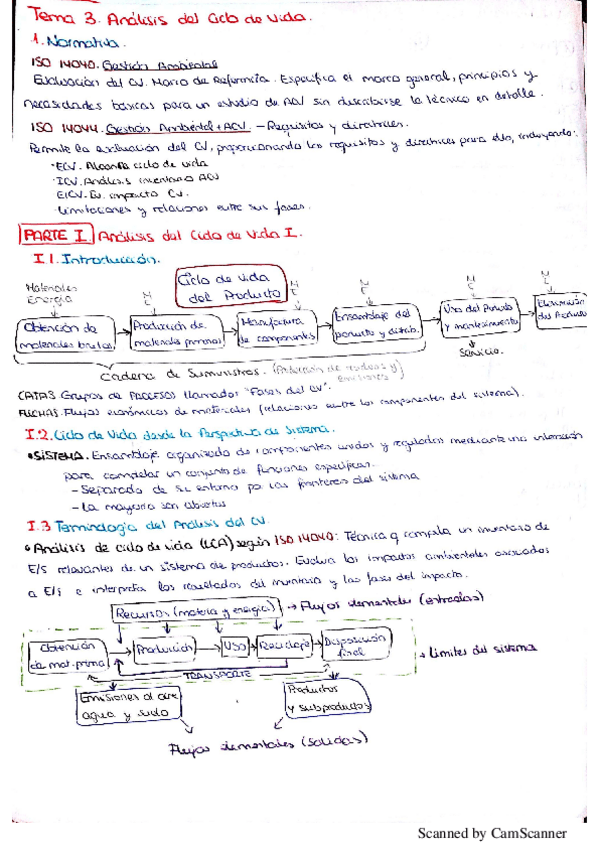 Tema 3. Análisis del Ciclo de Vida.
1. Normativa.
ISO 14040. Gestión Ambiental
Evaluación del CV. Marco de Referencia. Especifica el marco general, principios y
necesidades básicas para un estudio de ACV sin describirse la técnica en detalle.
ISO 14044. Gestión Ambiental + ACV. - Requisitos y directrices.
Permite la evaluación del CV, proporcionando los requisitos y directrices para ello, incluyendo:
· ECV. Alcance ciclo de vida
· ICV. Análisis inventario ACV
· EICV. Ev. impacto CV.
· Limitaciones y relaciones entre sus fases.
PARTE I Análisis del Ciclo de Vida I.
I.1. Introducción.
Materiales
Energía
Ciclo de vida
del Producto
M
E
M
E
M
E
M
E
M
E
Obtención de
materiales brutas
Producción de
materiales primarios
Manufactura
de componentes
Ensamblaje del
producto y distrib.
Uso del Producto
y mantenimiento
Eliminación
del Producto
Servicio.
Cadena de Suministros.
CAJAS Grupos de PROCESOS llamados "Fases del CV".
FLECHAS. Flujos económicos de materiales (relaciones entre los componentes del sistema).
I.2. Ciclo de Vida desde la Perspectiva de Sistema.
• SISTEMA. Ensamblaje organizado de componentes unidos y regulados mediante una interacción
para completar un conjunto de funciones específicas.
- Separado de su entorno por las fronteras del sistema
- La mayoría son abiertos
I.3 Terminología del Análisis del CV.
• Análisis de ciclo de vida (LCA) según ISO 14040: Técnica q compila un inventario de
E/S relevantes de un sistema de productos. Evalua los impactos ambientales asociados
a E/S e interpreta los resultados del inventario y las fases del impacto.
Recursos (materia y energía) → Flujos elementales (entradas)
Obtención
de mat. prima
Producción
Uso
Reciclaje
Disposición
final
→ Límites del sistema
TRANSPORTE
Emisiones al aire
agua y suelo
Productos
y subproductos
Flujos elementales (salidas)
Scanned by CamScanner